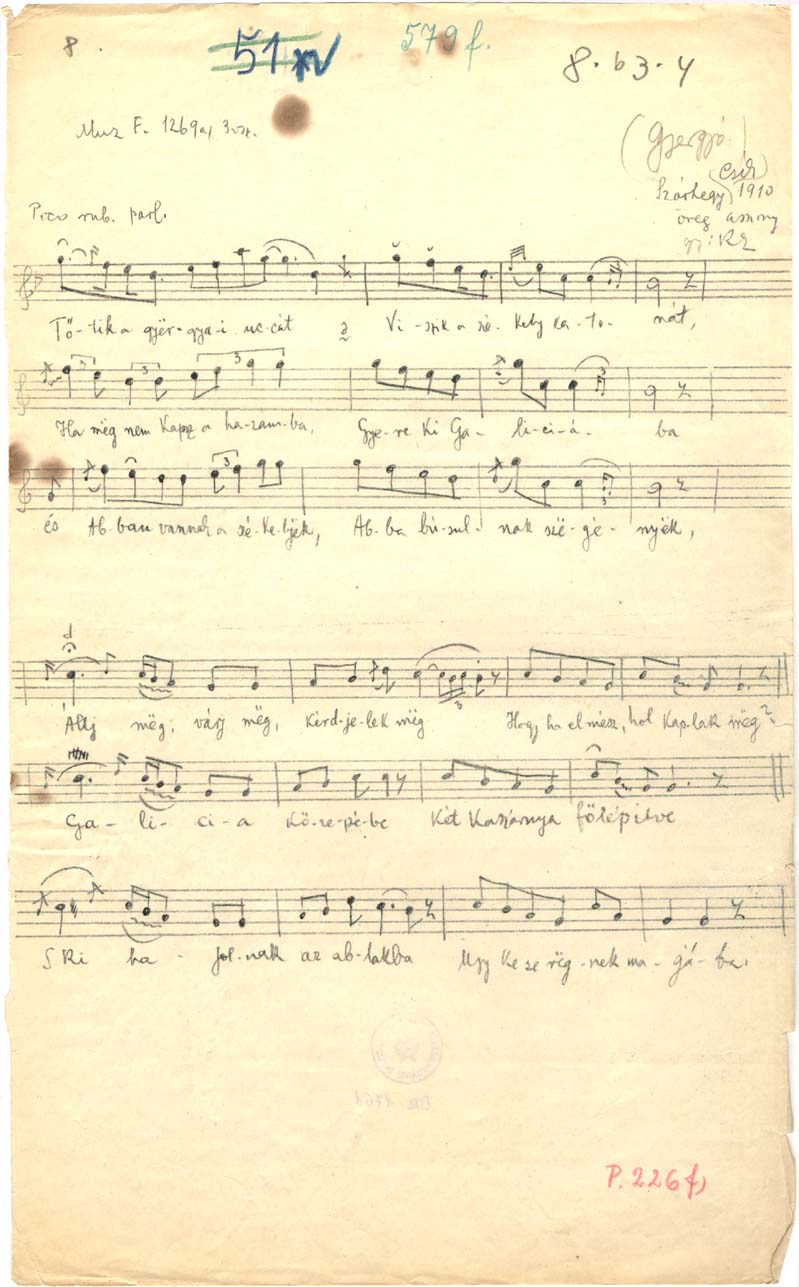 8.
51
579 f.
8. 63. 4
Muz F. 1269a)
(Gyergyó)
Szárhegy (Csík) 1910
öreg asszony
Poco rub. parl.
Tő-tik a gyër-gya-i uc-cát Vi-szik a szé-kely ka-to-nát,
Ha még nem kapsz a ha-zam-ba, Gye-re ki Ga-li-ci-á-ba
és Ab-ban vannak a szé-ke-lyëk, Ab-ba bú-sul-nak szë-gé-nyëk,
Állj mëg, várj mëg, kérd-je-lek mëg Hogy ha elmész, hol kap-lak mëg?
Ga-li-ci-a kö-ze-pé-be Két kaszárnya fölépitve
S ki ha-jol-nak az ab-lakba Ugy ke se rëg-nek ma-gá-ba.
P. 226 f)